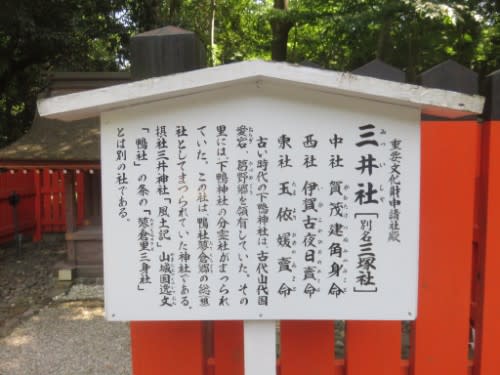 重要文化財申請社殿
三井社［別名三塚社］
中社 賀茂建角身命
西社 伊賀古夜日賣命
東社 玉依媛賣命
古い時代の下鴨神社は、古代山代国
愛宕、葛野郷を領有していた。その
里には、下鴨神社の分霊社がまつられ
ていた。この社は、鴨社蓼倉郷の総産
社としてまつられていた神社である。
摂社三井神社「風土記」山城国逸文
「鴨社」の条の「蓼倉里三身社」
とは別の社である。